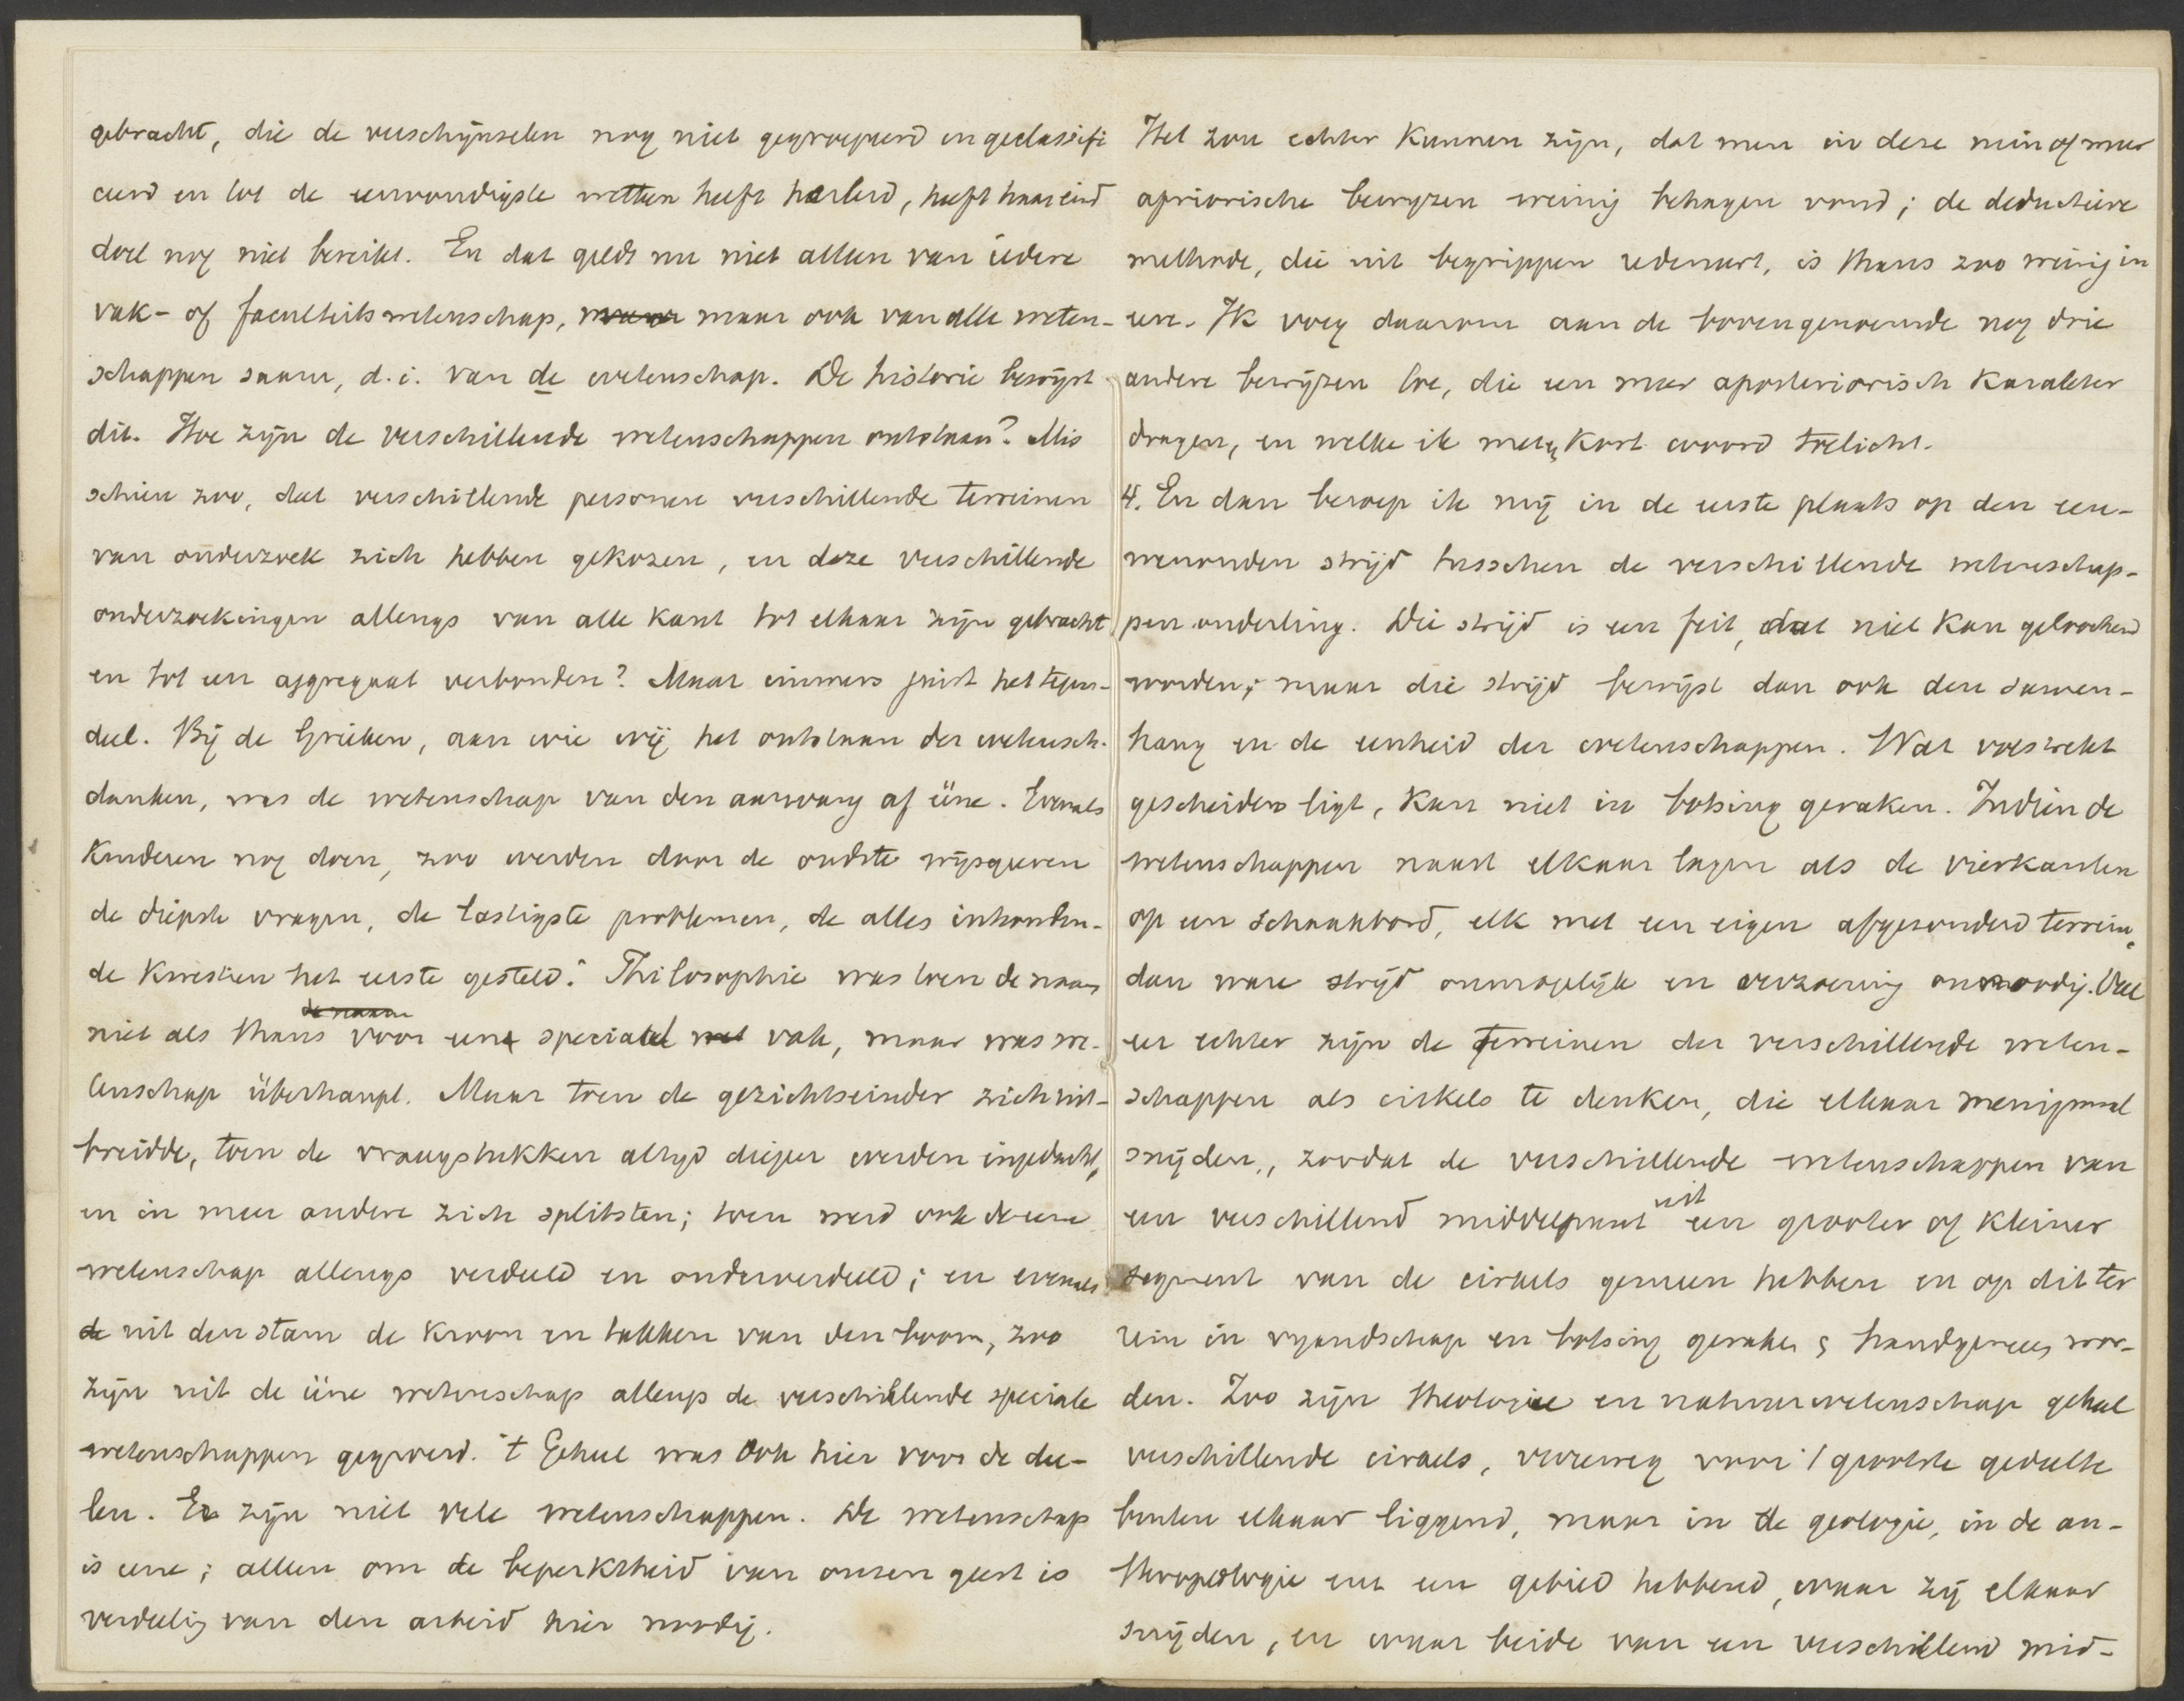 gebracht, die de verschijnselen nog niet gegroepeerd en geclassifi
ceerd en tot de eenvoudigste wetten heeft herleid, heeft haar eind
doel nog niet bereikt. En dat geldt nu niet alleen van iedere
vak- of faculteitswetenschap, maar ook van alle weten-
schappen saam, d.i. van de wetenschap. De historie bewijst
dit. Hoe zijn de verschillende wetenschappen ontstaan? Mis
schien zoo, dat verschillende personen verschillende terreinen
van onderzoek zich hebben gekozen, en deze verschillende
onderzoekingen allengs van alle kant tot elkaar zijn gebracht
en tot een aggregaat verbonden? Maar immers juist het tegen-
deel. Bij de Grieken, aan wie wij het ontstaan der wetensch.
danken, was de wetenschap van den aanvang af ééne. Evenals
Kinderen nog doen, zoo werden door de oudste wijsgeeren
de diepste vragen, de lastigste problemen, de alles inhouden-
de kwestien het eerste gesteld. Philosophie was toen de naam
niet als thans voor een speciaal vak, maar was we-
tenschap überhaupt. Maar toen de gezichtseinder zich uit-
breidde, toen de vraagstukken altijd dieper werden ingedacht,
en in meer andere zich splitsten; toen werd ook de eene
wetenschap allengs verdeeld en onderverdeeld; en evenals
uit den stam de kroon en takken van den boom, zoo
zijn uit de ééne wetenschap allengs de verschillende speciale
wetenschappen gegroeid. 't Geheel was ook hier voor de dee-
len. Er zijn niet vele wetenschappen. De wetenschap
is eene; alleen om de beperktheid van onzen geest is
verdeelig van den arbeid hier noodig.
Het zou echter kunnen zijn, dat men in deze min of meer
apriorische bewijzen weinig behagen vond; de deductieve
methode, die uit begrippen redeneert, is thans zoo weinig in
eere. Ik voeg daarom aan de bovengenoemde nog drie
andere bewijzen toe, die een meer aposteriorisch karakter
dragen, en welke ik met kort woord toelicht.
4. En dan beroep ik mij in de eerste plaats op den een-
wenouden strijd tusschen de verschillende wetenschap-
pen onderling. Die strijd is een feit, dat niet kan geloochend
worden; maar die strijd bewijst dan ook den samen-
hang en de eenheid der wetenschappen. Wat volstrekt
gescheiden ligt, kan niet in botsing geraken. Indien de
wetenschappen naast elkaar lagen als de vierkanten
op een schaakbord, elk met een eigen afgezonderd terrein,
dan ware strijd onmogelijk en verzoening onnoodig. Veel
eer echter zijn de terreinen der verschillende weten-
schappen als cirkels te denken, die elkaar menigmaal
snijden, zoodat de verschillende wetenschappen van
uit
een verschillend middelpunt een grooter of kleiner
segment van de cirkels gemeen hebben en op dit ter
rein in vyandschap en botsing geraken & handgemeen wor-
den. Zoo zijn theologie en natuurwetenschap geheel
verschillende cirkels, verreweg voor 't grootste gedeelte
buiten elkaar liggend, maar in de geologie, in de an-
thropologie een gebied hebbend, waar zij elkaar
snijden, en waar beide van een verschillend mid-